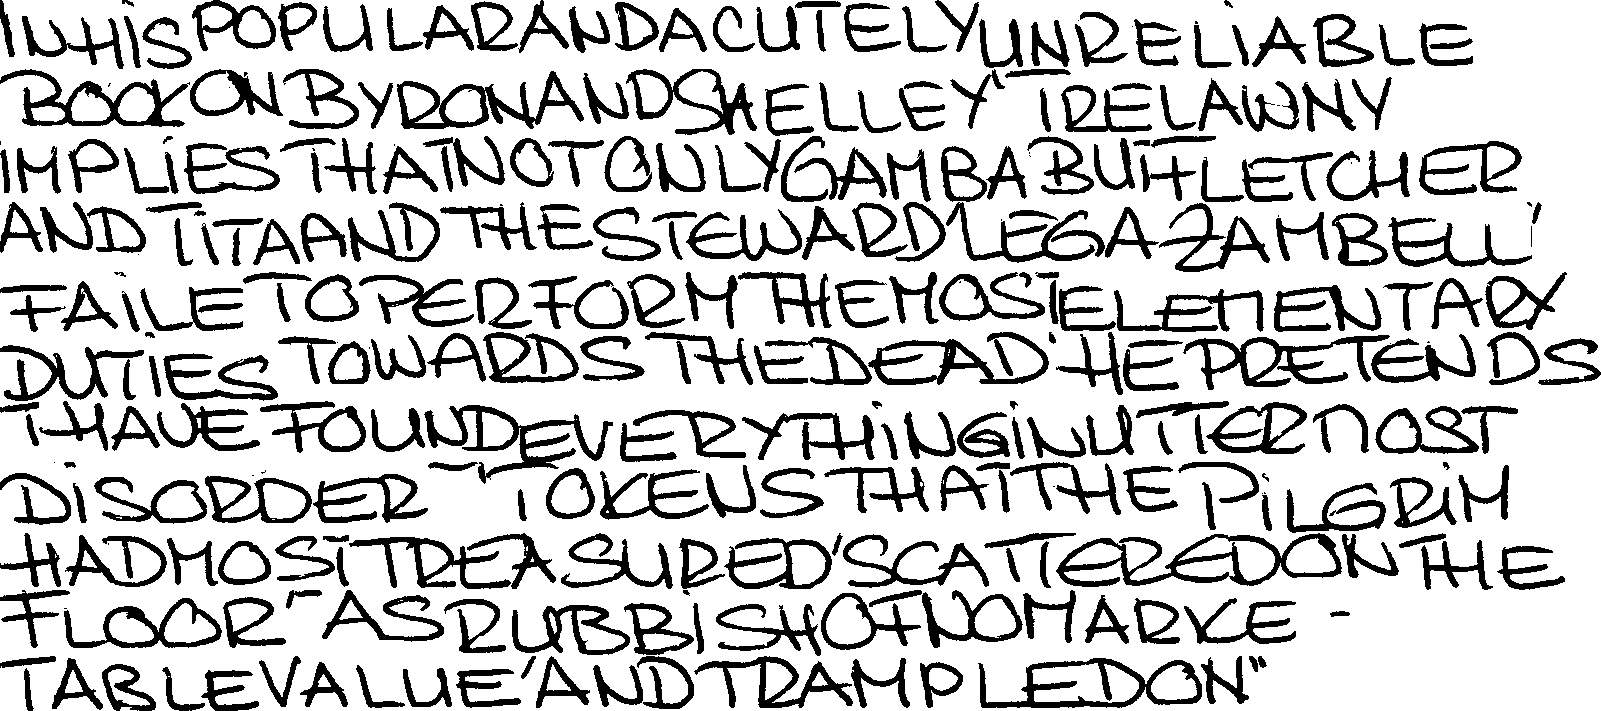 IN HIS POPULAR AND ACUTELY UNRELIABLE
BOOK ON BYRON AND SHELLEY" TRELAWNY
IMPLIES THAT NOT ONLY GAMBA BUT FLETCHER
AND TITA AND THE STEWARD, LEGA ZAMBELLI
FAILE TO PERFORM THE MOST ELEMENTARY
DUTIES TOWARDS THE DEAD. HE PRETENDS
T HAVE FOUND EVERYTHING IN UTTERMOST
DISORDER - "TOKENS THAT THE PILGRIM
HAD MOST TREASURED, SCATTERED ON THE
FLOOR - AS RUBBISH OF NO MARKE -
TABLE VALUE, AND TRAMPLED ON"